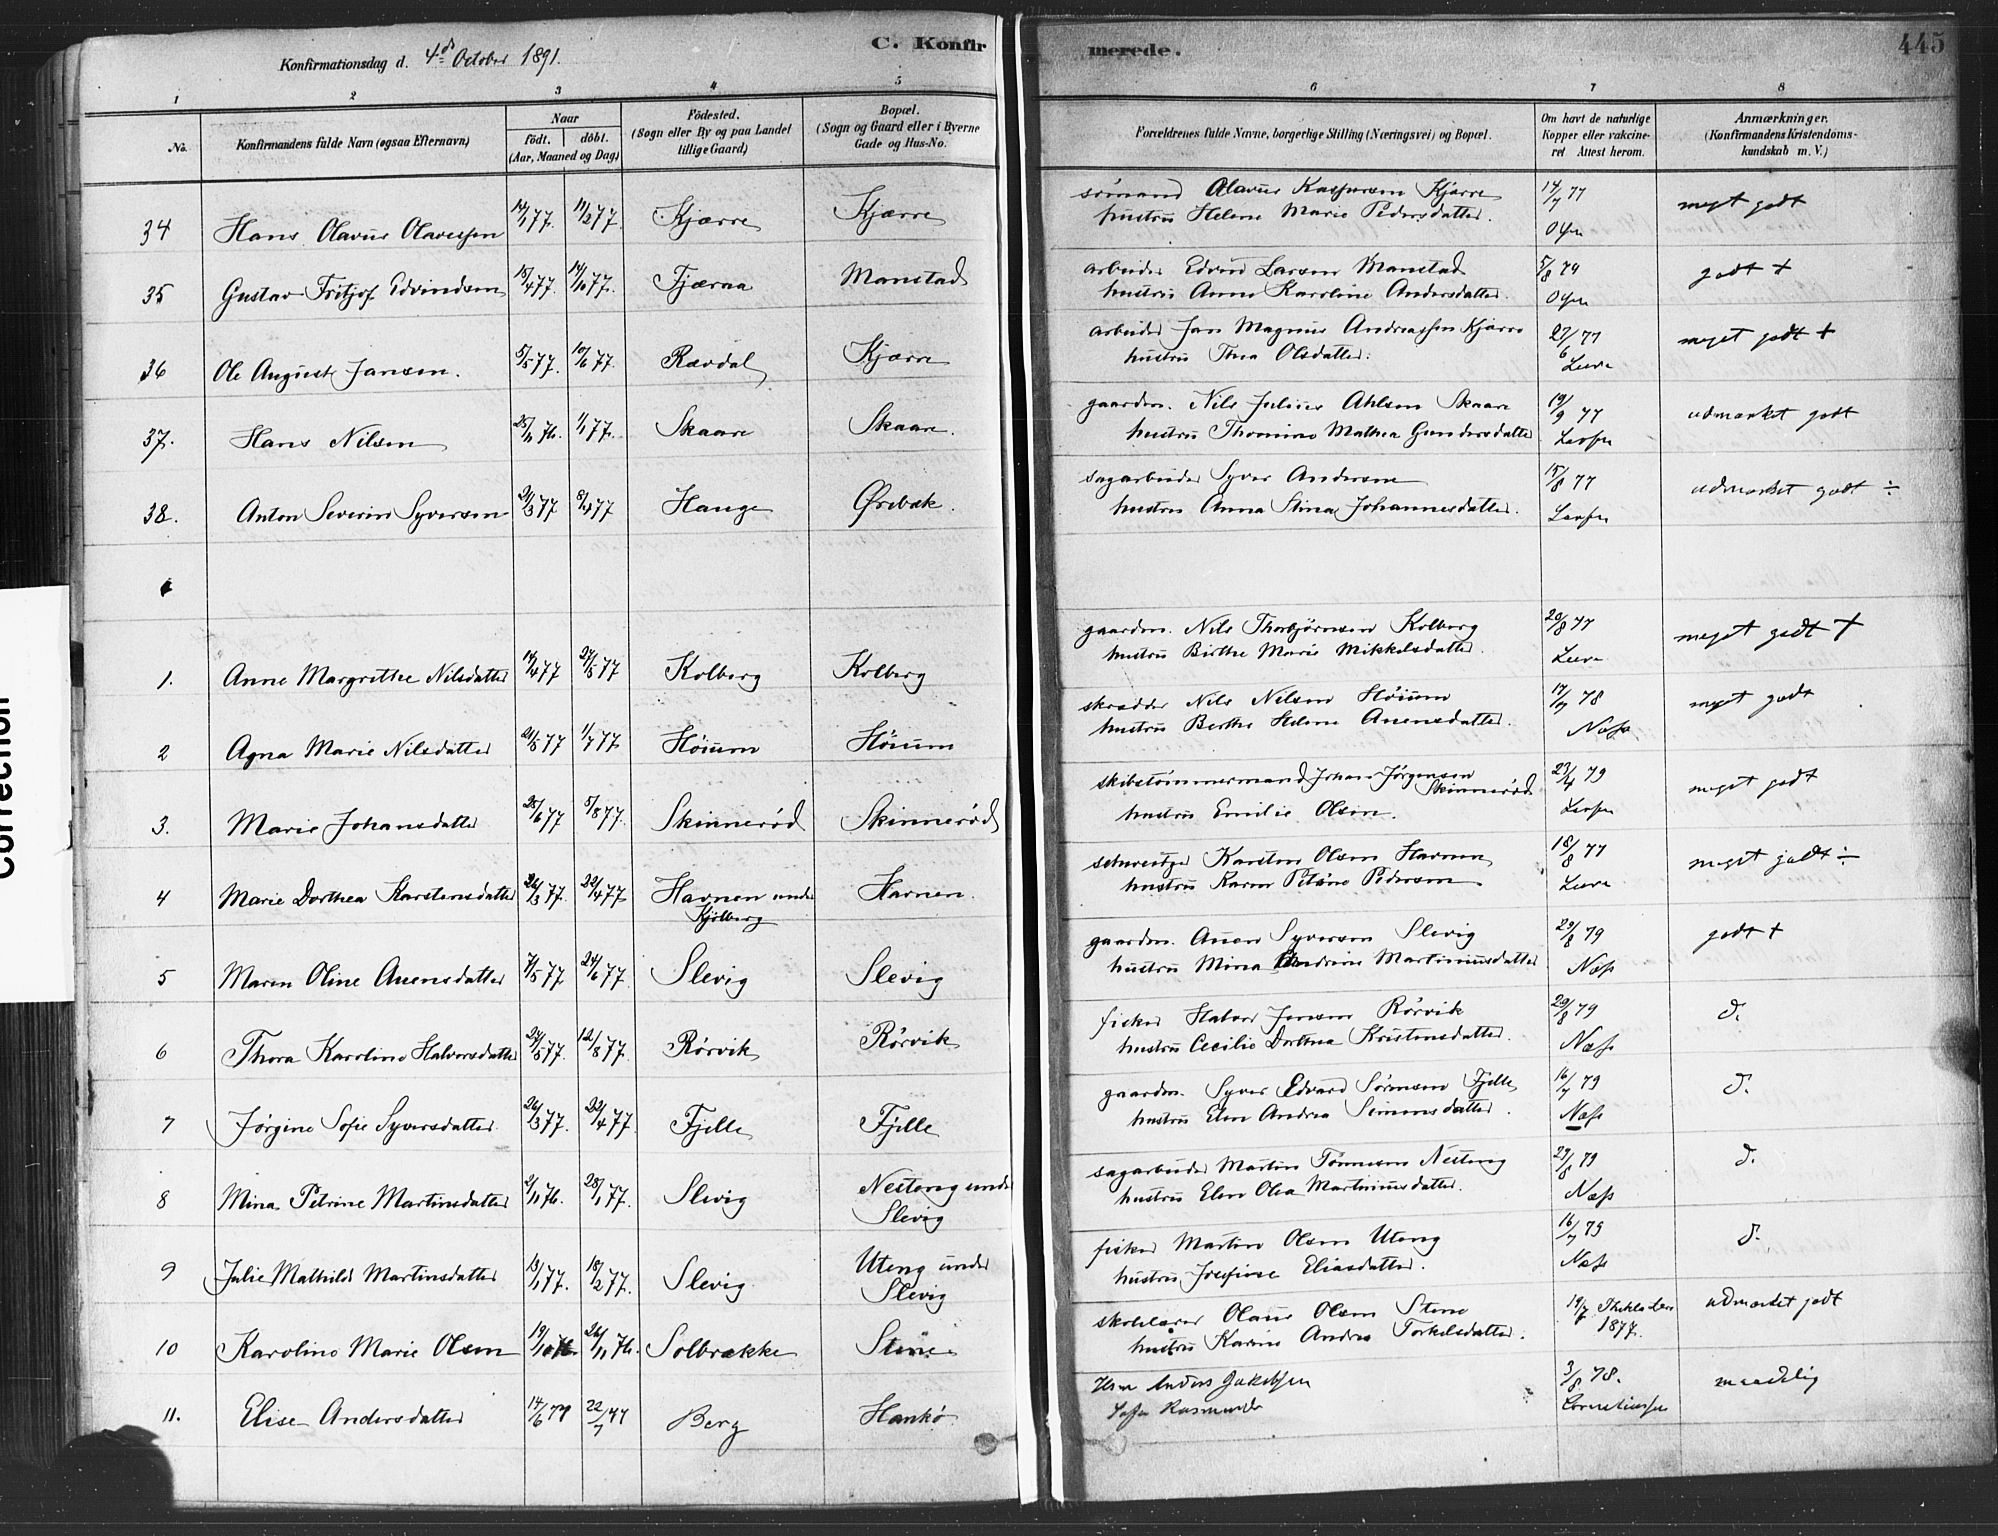 Konfirmationsdag d. 4de October 1891.
C. Konfir
merede.
445
1 2 3 4 5 6 7 8
No.
Konfirmandens fulde Navn (ogsaa Efternavn)
Naar
födt. döbt.
(Aar, Maaned og Dag)
Födested.
(Sogn eller By og paa Landet
tillige Gaard)
Bopæl.
(Sogn og Gaard eller i Byerne
Gade og Hus-No.
Forældrenes fulde Navne, borgerlige Stilling (Næringsvei) og Bopæl.
Om havt de naturlige
Kopper eller vakcine-
ret Attest herom.
Anmærkninger.
(Konfirmandens Kristendoms-
kundskab m. V.)
34 Hans Olavus Olavessen 14/1 77. 11/2 77. Kjærre Kjærre
sömand Olavus Kaspersen Kjærre 14/7 77 meget godt
hustru Helene Marie Pedersdatter.
35 Gustav Fritjof Edvindsen 15/4 77. Fjæraa Manstad
arbeider Edvin Larsen Manstad 5/8 79 godt +
hustru Anne Karoline Andersdatter.
36 Ole August Jansen. 5/5 77. 10/6 77. Rævdal Kjærre
arbeider Jan Magnus Andreassen Kjærre 27/6 77 meget godt +
hustru Thea Olsdatter.
37. Hans Nilsen 25/11 76. 1/1 77. Skaare Skaare.
gaardm. Nils Julius Ahlsen Skaare 19/9 77 udmærket godt
hustru Thomine Mathea Gundersdatter
38. Anton Severin Syversen 21/3 77 8/4 77 Hauge Ørebæk.
sagarbeider Syver Andersen 15/8 77 udmærket godt ÷
hustru Anna Stina Johannesdatter.
1. Anne Margrethe Nilsdatter 14/4 77 27/5 77 Kolberg Kolberg
gaardm. Nils Thorbjörnsen Kolberg 20/8 77 meget godt +
hustru Birthe Marie Mikkelsdatter.
2 Agna Marie Nilsdatter 21/5 77 1/7 77 Höium Höium
skrædder Nils Nilsen Höium 17/7 78 meget godt
hustru Berthe Helene Auensdatter. Næss
3. Marie Johansdatter 28/6 77 5/8 77. Skinneröd Skinneröd
skibstömmermand Johan Jörgensen 23/4 79 meget godt
Skinneröd
hustru Emilie Olsen.
4 Marie Dorthea Karstensdatter 26/3 77. 22/4 77 Havnen under Havnen.
Kjölberg
Karsten Olsen Havnen 18/8 77 meget godt ÷
hustru Karen Petrine Pedersen
5 Maren Oline Auensdatter 7/5 77 24/6 77 Slevig Slevig
gaardm. Auen Syversen Slevig 29/8 79 godt +
hustru Mina Andrine Martiniusdatter Næss
6 Thora Karoline Halvorsdatter 27/5 77. 12/8 77. Rörvik Rörvik
fisker Halvor Jensen Rörvik 29/8 79 d.
hustru Cecilie Dorthea Kristensdatter. Næss
7 Jörgine Sofie Syversdatter 26/3 77. 22/4 77. Fjelle Fjelle
gaardm. Syver Edvard Sörensen Fjelle 16/7 79 d.
hustru Elen Andrea Simensdatter. Næss
8 Mina Petrine Martinsdatter 2/11 76. 28/1 77. Slevig Nesteng under
Slevig
sagarbeider Martin Tönnesen Nesteng 29/8 79 d.
hustru Elen Olea Martiniusdatter. Næss
9 Julie Mathilde Martinsdatter 13/1 77. 18/2 77. Slevig Uteng under
Slevig
fisker Martin Olsen Uteng 16/7 79 d.
hustru Josefine Eliasdatter. Næss
10 Karoline Marie Olsen 19/10 76. 26/11 76. Solbrække Stene
skolelærer Olaus Olsen Stene 19/7 1877. udmærket godt
hustru Karine Andrea Torkelsdatter.
11. Elise Andersdatter 14/6 77 22/7 77 Berg Hankö
Anders Jakobsen 3/8 78. maadelig
Corneliussen